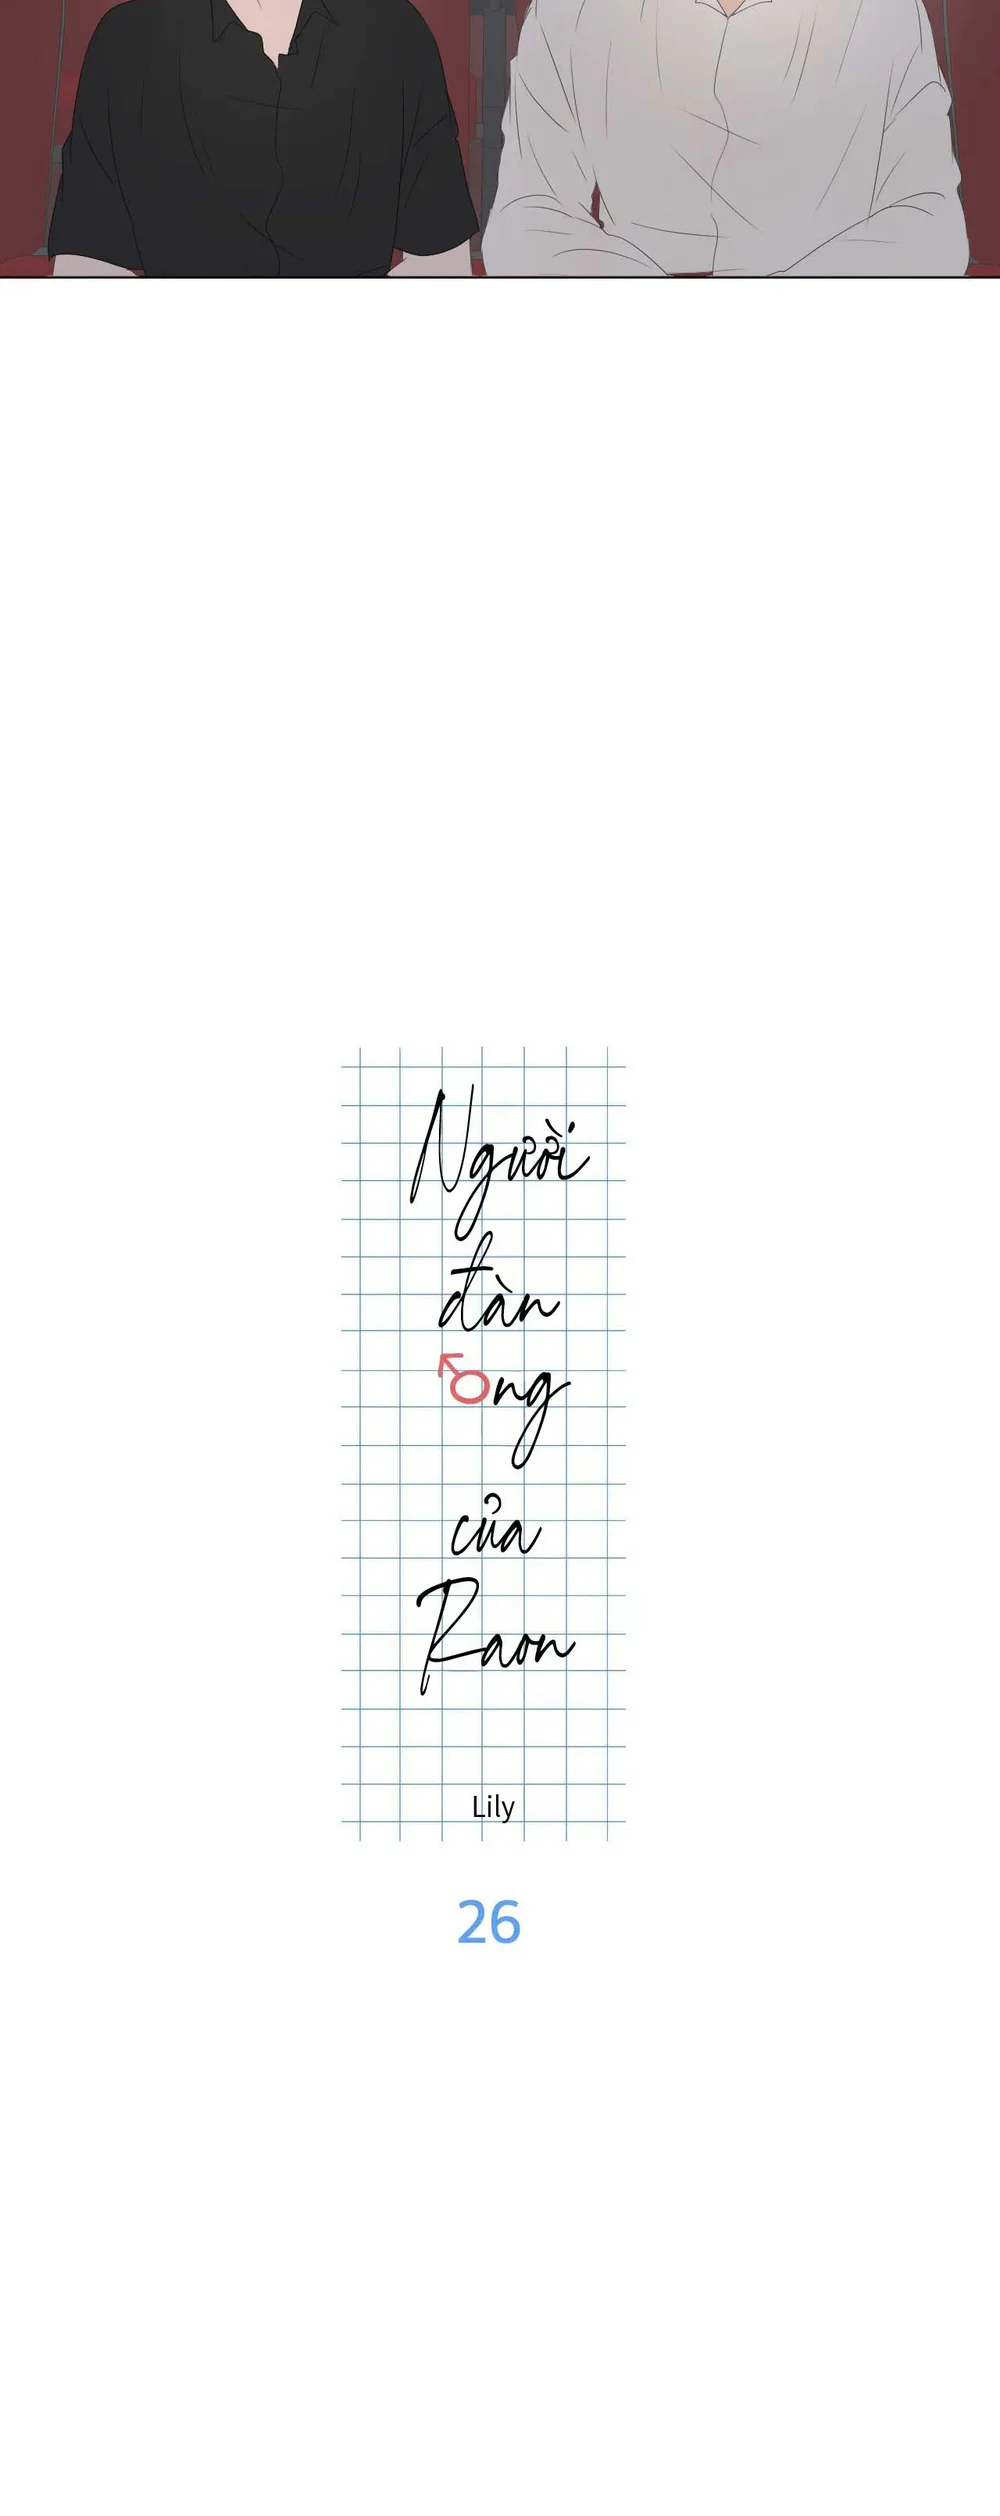 Người
đàn
ông
của
Ram
Lily
26